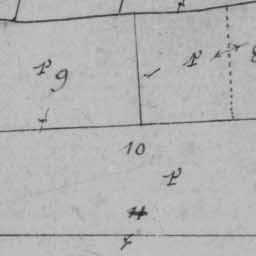 P 9
P
10
P